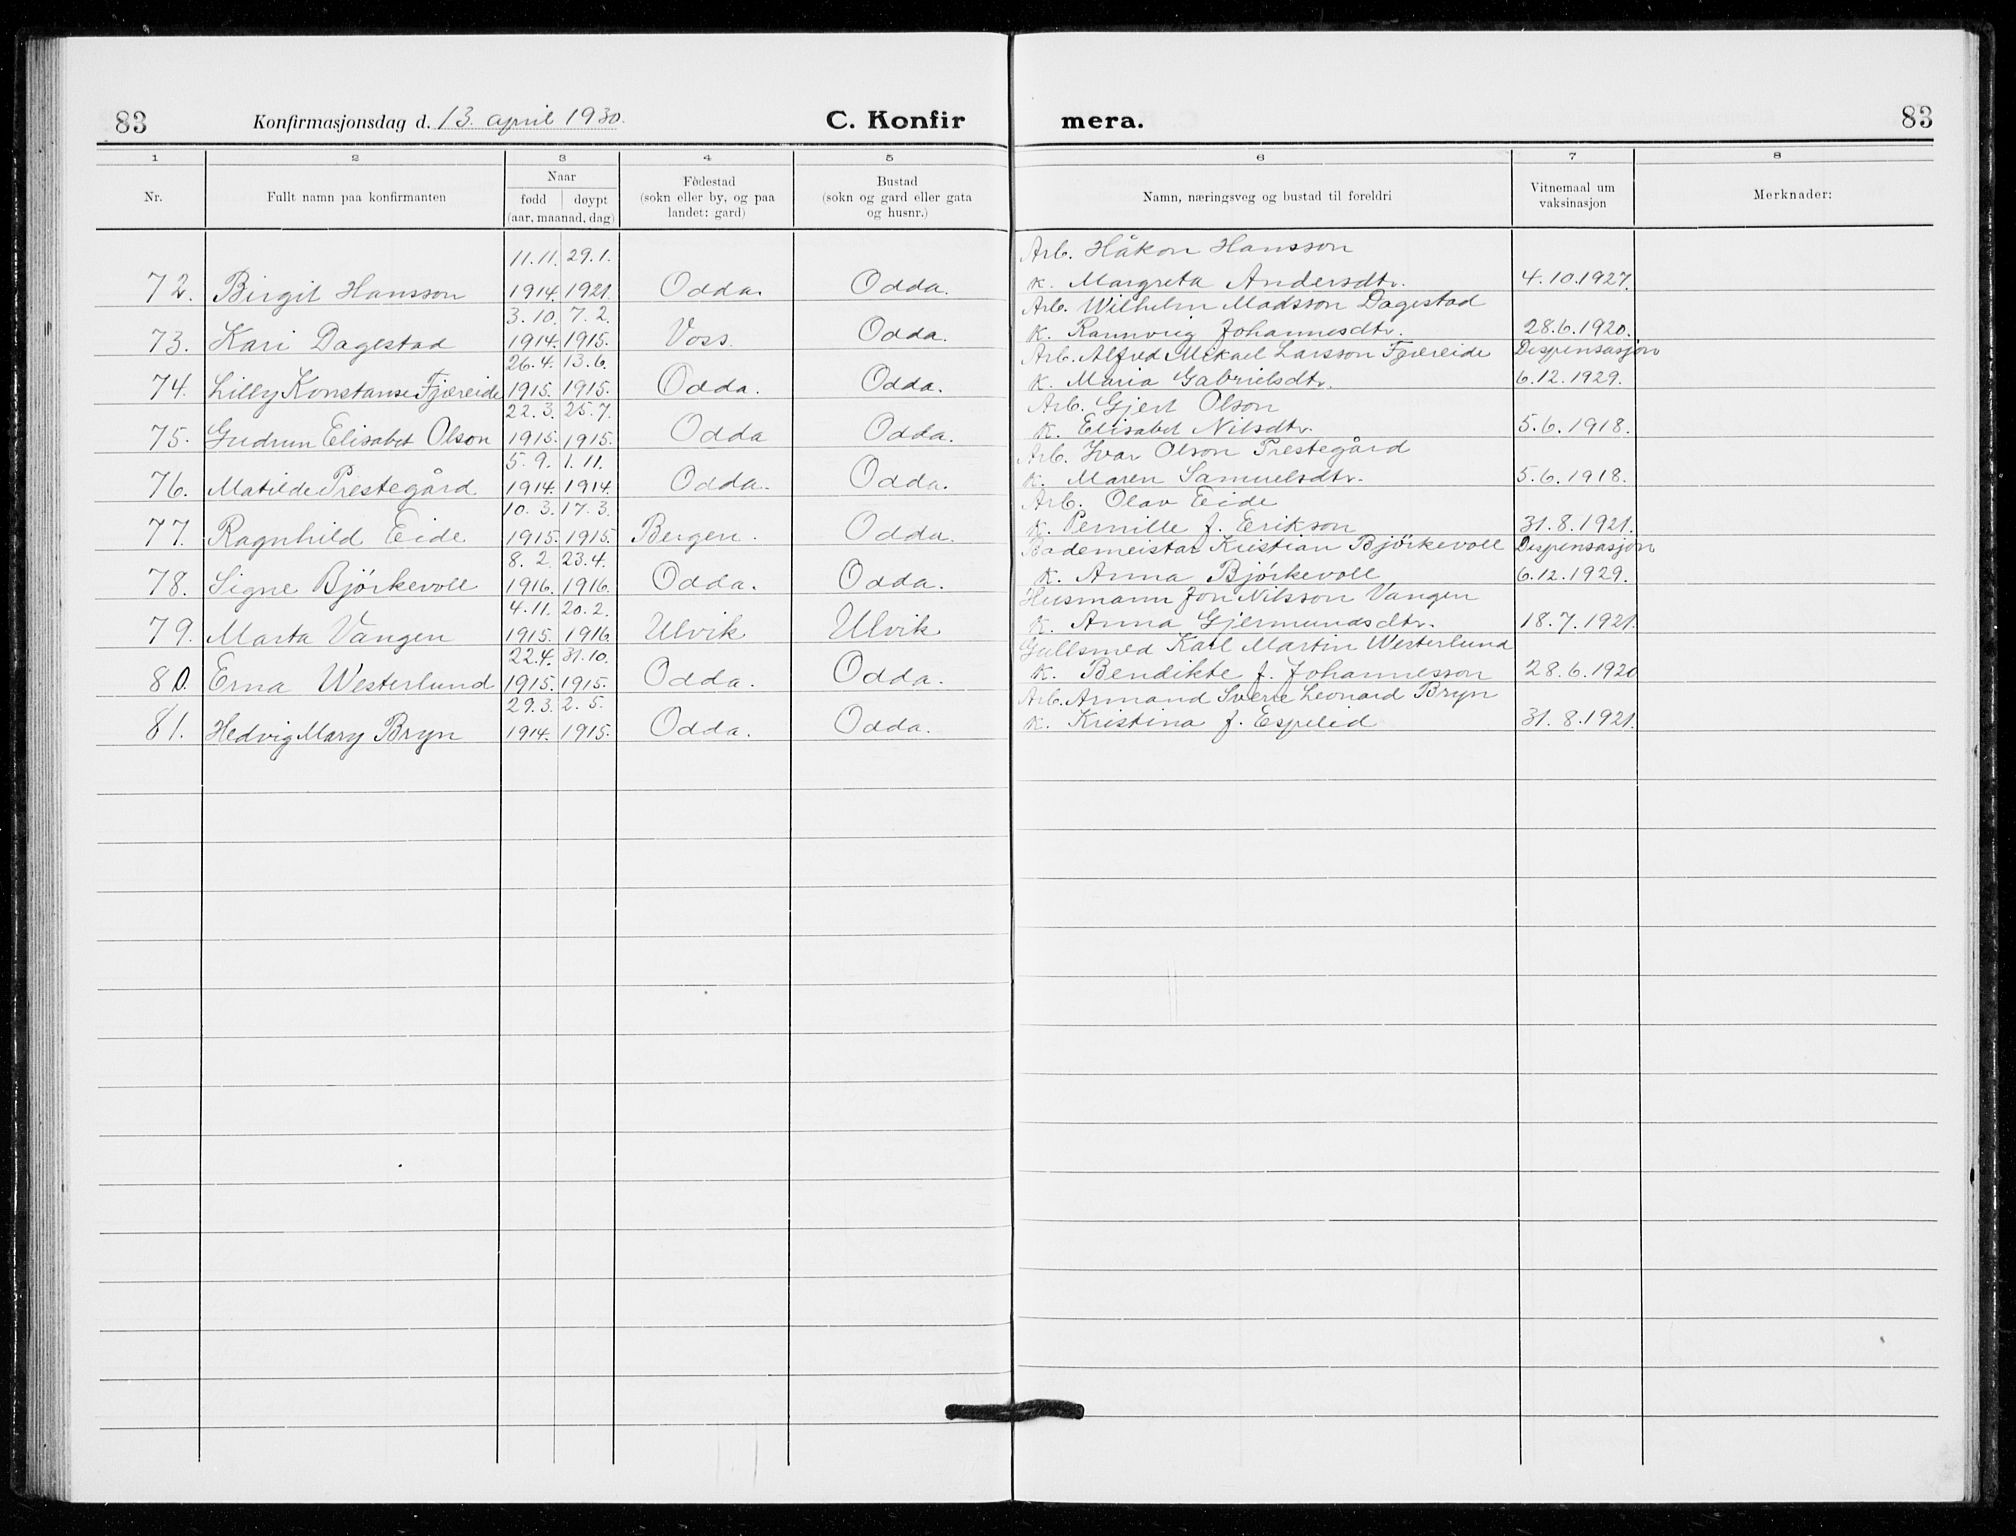 83 Konfirmasjonsdag d. 13. april 1930. C. Konfir mera. 83
1 2 3 4 5 6 7 8
Nr. Fullt namn paa konfirmanten Naar Fødestad Bustad Namn, næringsveg og bustad til foreldri Vitnemaal um Merknader:
fødd døypt (sokn eller by, og paa (sokn og gard eller gata vaksinasjon
(aar, maanad, dag) landet: gard) og husnr.)
11.11. 29.1. Arb. Håkon Hansson
72. Birgit Hansson 1914. 1921. Odda. Odda. K. Margreta Andersdtr. 4.10.1927.
3.10. 7.2. Arb. Wilhelm Madsson Dagestad
73. Kari Dagestad 1914. 1915. Voss. Odda. K. Rannveig Johannesdtr. 28.6.1920.
26.4. 13.6. Arb. Alfred Mikael Larsson Fjæreide Dispensasjon
74. Lilly Konstanse Fjæreide 1915. 1915. Odda. Odda. K. Maria Gabrielsdtr. 6.12.1929.
22.3. 25.7. Arb. Gjert Olson
75. Gudrun Elisabet Olson 1915. 1915. Odda Odda. K. Elisabet Nilsdtr. 5.6.1918.
5.9. 1.11. Arb. Ivar Olson Prestegård
76. Matilde Prestegård 1914. 1914. Odda. Odda. K. Maren Samuelsdtr. 5.6.1918.
10.3. 17.3. Arb. Olav Eide
77. Ragnhild Eide 1915. 1915. Bergen. Odda. K. Pernille f. Erikson 31.8.1921.
8.2. 23.4. Bademeistar Kristian Bjørkevoll Dispensasjon
78. Signe Bjørkevoll 1916. 1916. Odda. Odda. K. Anna Bjørkevoll 6.12.1929.
4.11. 20.2. Husmann Jon Nilsson Vangen
79. Marta Vangen 1915. 1916. Ulvik Ulvik K. Anna Gjermundsdtr. 18.7.1921.
22.4. 31.10. Gullsmed Karl Martin Westerlund
80. Erna Westerlund 1915. 1915. Odda. Odda. K. Bendikte f. Johannesson 28.6.1920
29.3. 2.5. Arb. Armand Sverre Leonard Bryn
81. Hedvig Mary Bryn 1914. 1915. Odda. Odda. K. Kristina f. Espeleid 31.8.1921.